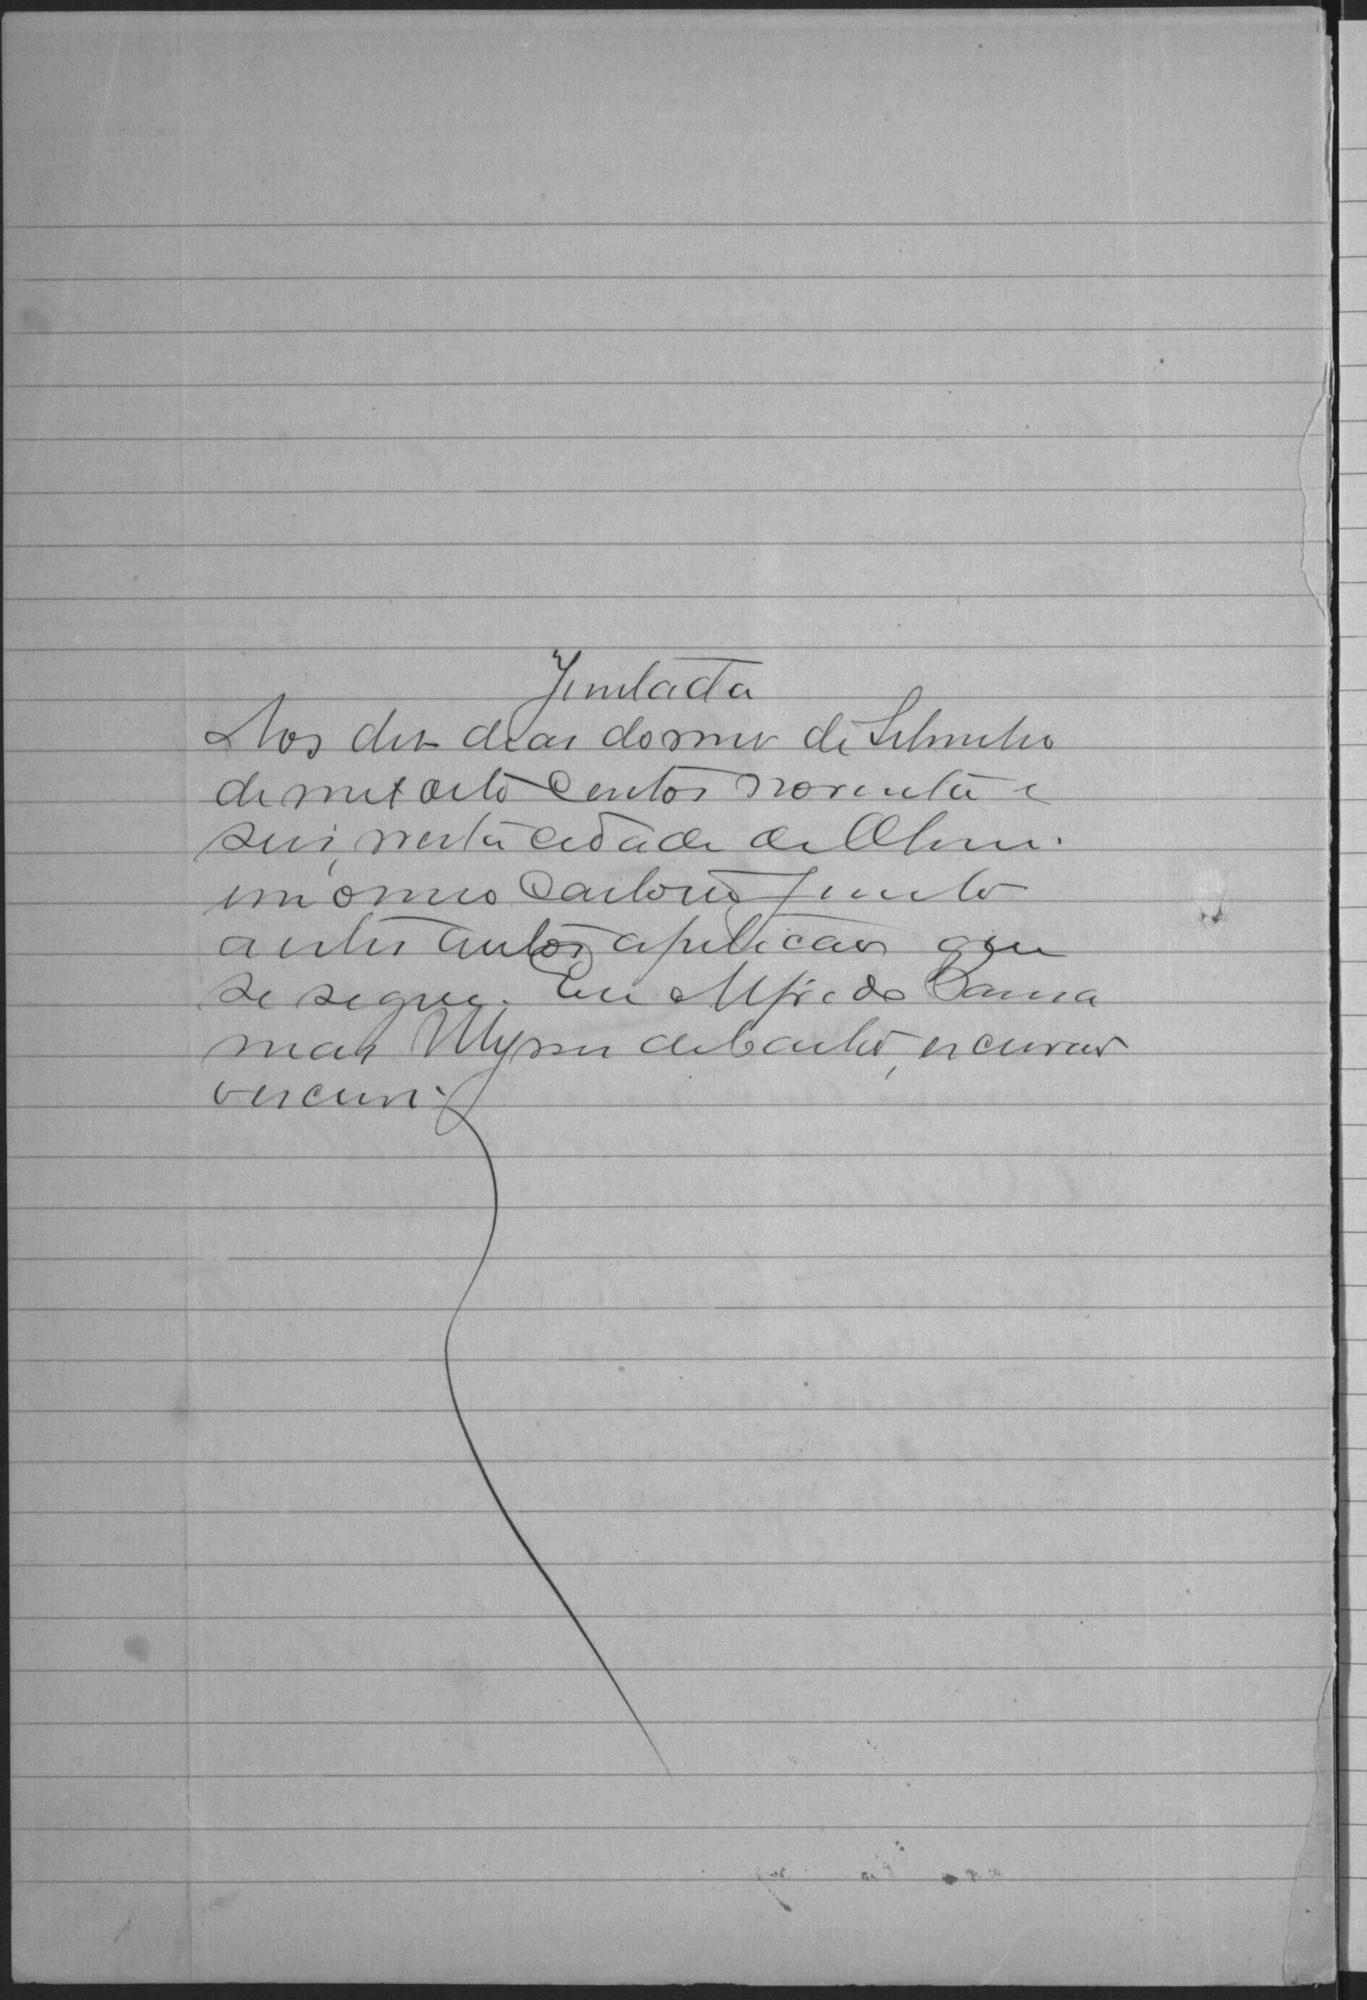 Juntada
Aos dez dias do mez de Setembro
de mil oito centos noventa e
seis, nesta cidade de
em o meu Cartorio, junto
a estes autos a petição que
se segue. Eu Alfredo Gama
escrivão
o escrevi.